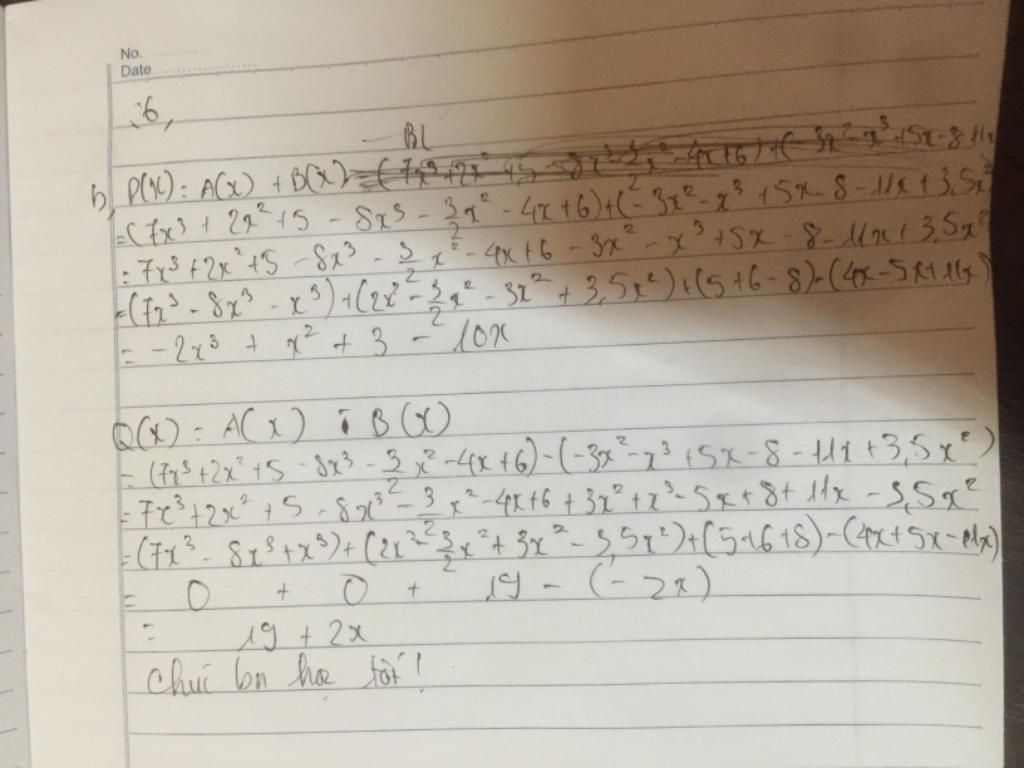 No.
Date
:6,
BL
b, P(x) = A(x) + B(x)
= (7x³ + 2x² + 5 - 8x³ - 3/2 x² - 4x + 6) + (-3x² - x³ + 5x - 8 - 11x + 3,5x²)
= 7x³ + 2x² + 5 - 8x³ - 3/2 x² - 4x + 6 - 3x² - x³ + 5x - 8 - 11x + 3,5x²
= (7x³ - 8x³ - x³) + (2x² - 3/2 x² - 3x² + 3,5x²) + (5 + 6 - 8) - (4x - 5x + 11x)
= - 2x³ + x² + 3 - 10x
Q(x) = A(x) - B(x)
= (7x³ + 2x² + 5 - 8x³ - 3/2 x² - 4x + 6) - (-3x² - x³ + 5x - 8 - 11x + 3,5x²)
= 7x³ + 2x² + 5 - 8x³ - 3/2 x² - 4x + 6 + 3x² + x³ - 5x + 8 + 11x - 3,5x²
= (7x³ - 8x³ + x³) + (2x² - 3/2 x² + 3x² - 3,5x²) + (5 + 6 + 8) - (4x + 5x - 11x)
= 0 + 0 + 19 - (-2x)
= 19 + 2x
Chúc bn học tốt!